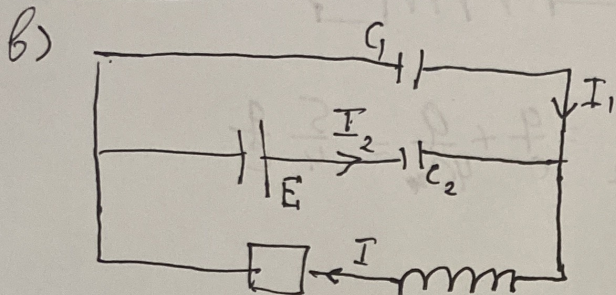 в)
C₁
I₁
I₂
C₂
E
I